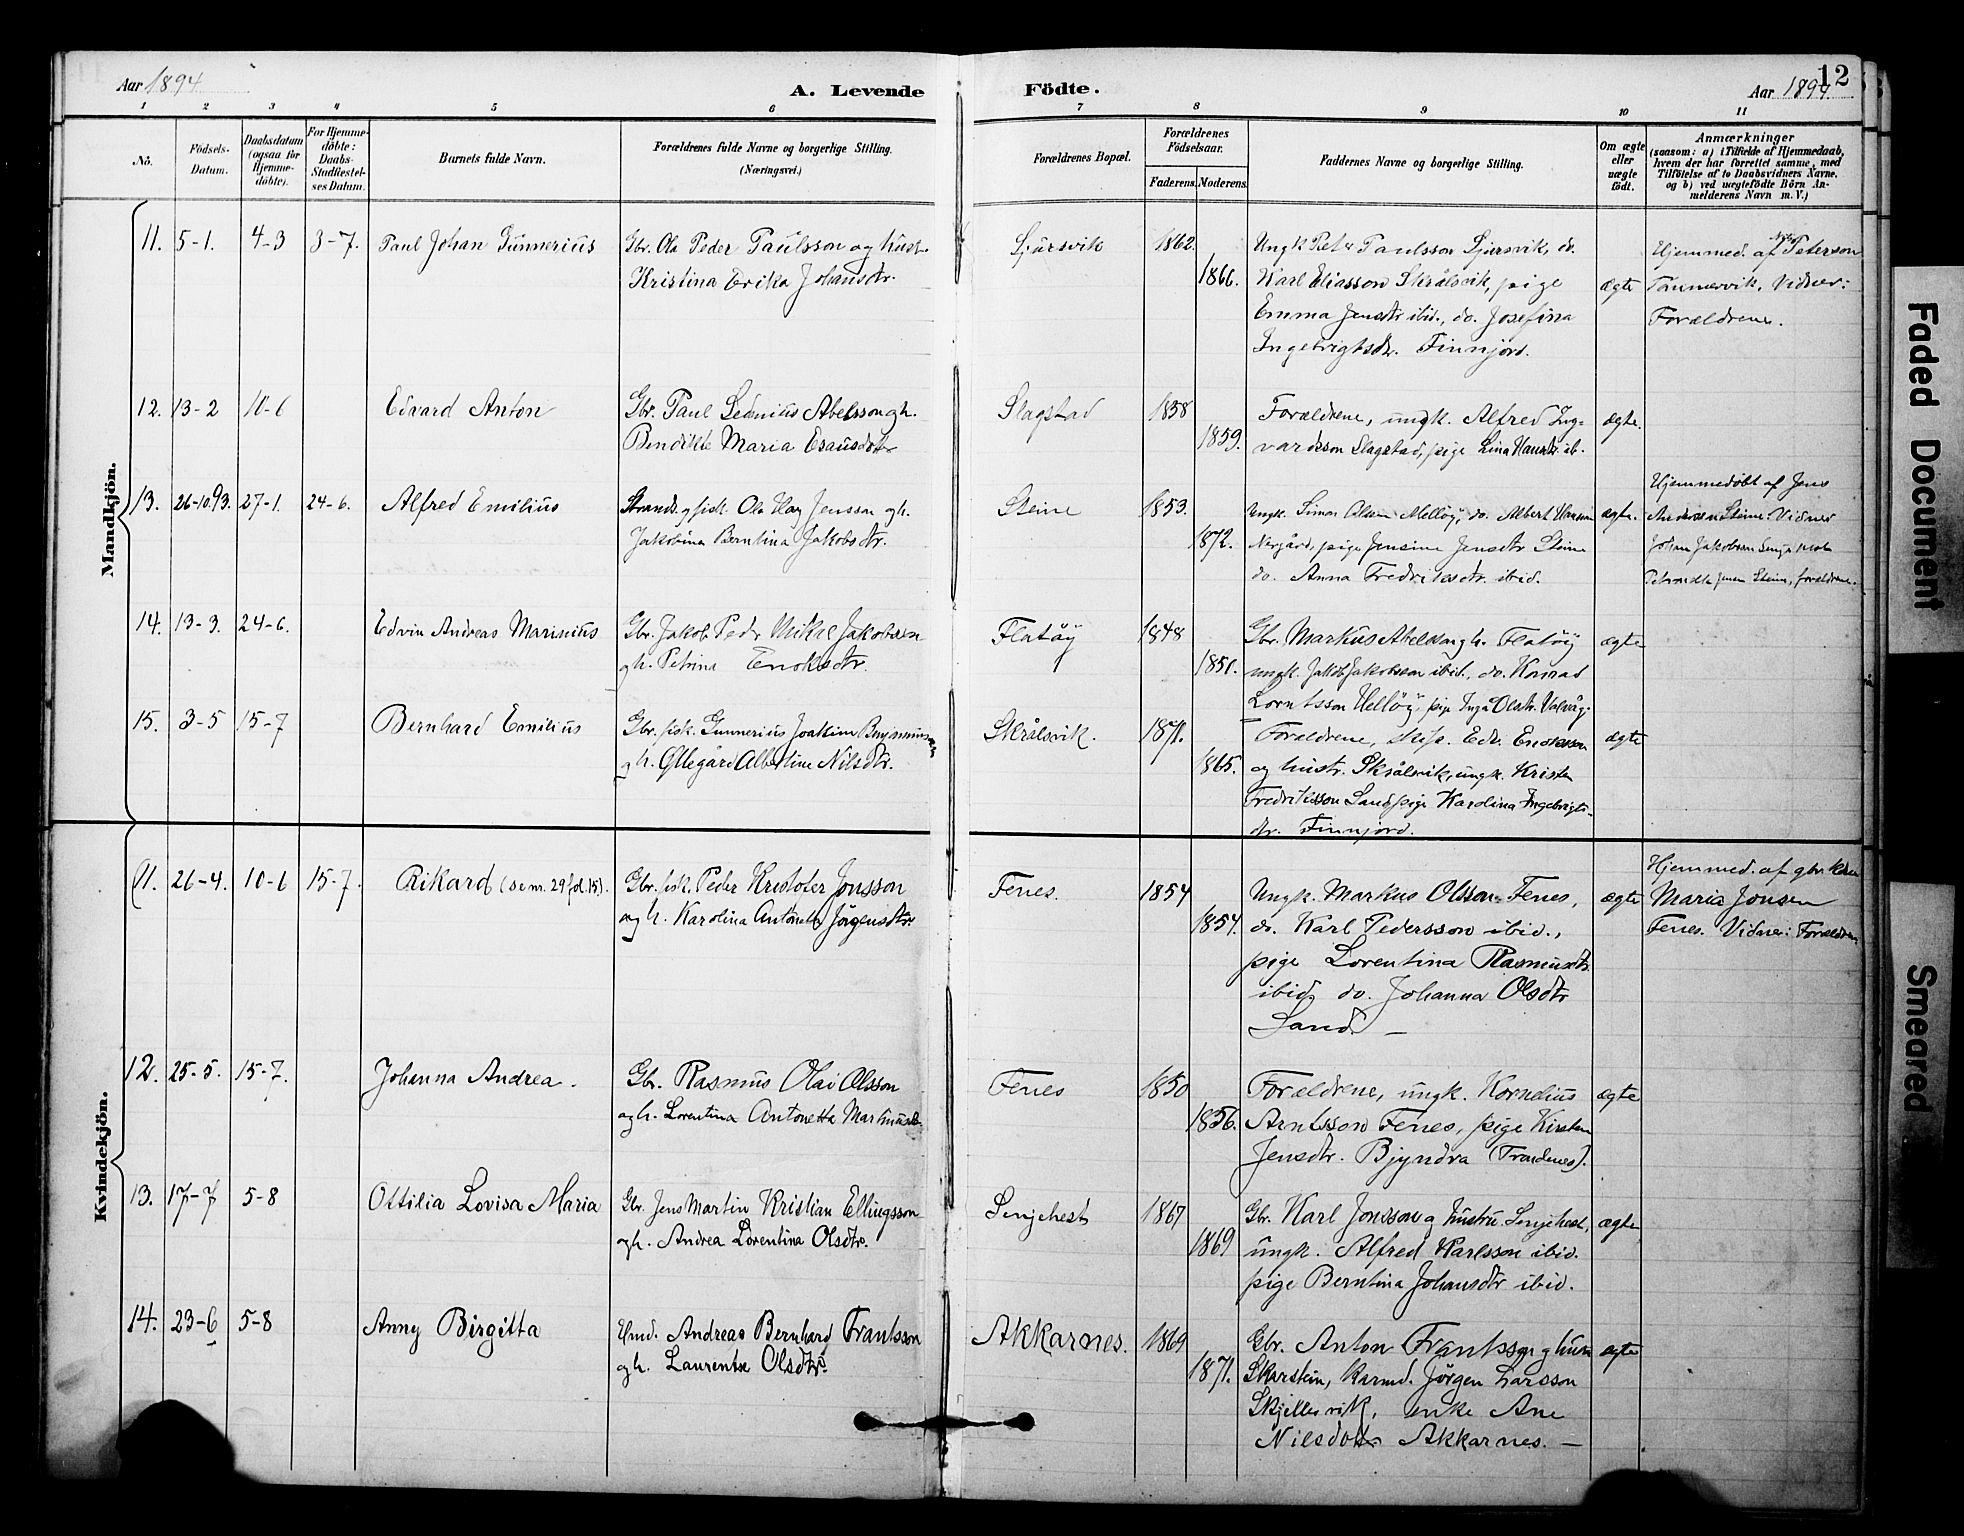 Aar 1894
A. Levende
1 2 3 4 5 6
No.
Födsels-
Datum.
Daabsdatum
(ogsaa for
Hjemme-
döbte).
For Hjemme-
döbte:
Daabs-
Stadfæstel-
ses Datum.
Barnets fulde Navn.
Forældrenes fulde Navne og borgerlige Stilling.
(Næringsvei.)
Mandkjön.
11. 5-1. 4-3 3-7. Paul Johan Gunnerius Gbr. Ola Peder Paulsson og hust.
Kristina Erika Johansdtr.
12. 13-2 10-6 Edvard Anton Gbr. Paul Abelsson g h.
Bendikte Maria Esausdatr
13. 26-10.93. 27-1. 24-6. Alfred Emilius Strands. g fisk. Ola Hag Jensson g h.
Jakobina Berntina Jakobsdtr.
14. 13-3. 24-6. Edvin Andreas Marinius Gbr. Jakob Pedr Mikal Jakobssen
g h. Petrina Enoksdtr.
15. 3-5 15-7 Bernhard Emilius Gbr. fisk. Gunnerius Joakim
g h. Albertine Nilsdtr.
Kvindekjön.
11. 26-4. 10-6 15-7. Rikard (se nr. 29 fol. 15). Gbr. fisk. Peder Kristofer Jonsson
og h. Karolina Antonette Jörgensdtr.
12. 25-5. 15-7. Johanna Andrea. Gbr. Rasmus Olai Olsson
og h. Lorentina Antonetta
13. 17-7 5-8 Ottilia Lovisa Maria Gbr. Jens Martin Kristian Ellingsson
g h. Andrea Lorentina Olsdtr.
14. 23-6 5-8 Anny Birgitta Hmd. Andreas Bernhard Frantsson
g h. Laurentse Olsdtr.
12
Födte.
Aar 1894.
7 8 9 10 11
Forældrenes Bopæl.
Forældrenes
Födselsaar.
Faderens. Moderens.
Faddernes Navne og borgerlige Stilling.
Om ægte
eller
uægte
födt.
Anmærkninger
(saasom: a) i Tilfælde af Hjemmedaab,
hvem der har forrettet samme, med
Tilföielse af to Daabsvidners Navne,
og b) ved uægtefödte Börn An-
melderens Navn m. V.)
1862. Ungk. Peter Paulsson do. Hjemmed. af Peterson
1866. Karl Eliasson Skrålsvik, pige ægte Vidner:
Emma Jensdtr ibid., do. Josefina Forældrene.
Ingebrigtsdtr. Finnjord.
Slagstad 1858 Forældrene, ungk. Alfred Ing-
1859. vardsson Slagstad, pige Lina Hansdtr. ib. ægte.
Hjemmedöbt af Jens
Steine 1853. Ungk. Simon Olsen do. Albert Hansen ægte. Steine. Vidner
1872. pige Jensine Jensdtr Steine Johan Jakobsen
do. Anna Fredriksdtr. ibid. Jensen Steine, forældrene.
Flatöy 1848 Gbr. Markus Abelsson g h. Flatöy ægte
1851. ungk. Jakob Jakobssen ibid., do. Konrad
Lorntsson pige Inga Olsdtr.
Skrålsvik. 1871. Forældrene, Edv. Enoksson ægte
1865. og hustr. Skrålsvik, ungk. Kristen
Fredriksson Sand, pige Karolina Ingebrigts-
dtr. Finnjord.
Hjemmed. af
Fenes. 1854 Ungk. Markus Olsson Fenes, ægte Maria Jonsen
1854. do. Karl Pedersson ibid., Fenes. Vidner: Forældrene
pige Lorentina Rasmusdtr.
ibid, do. Johanna Olsdtr
Sand. —
Fenes 1850 Forældrene, ungk. Kornelius ægte
1856. Arntsson Fenes, pige Kirsten
Jensdtr. (Trondenes).
Senjehest 1867 Gbr. Karl Jonsson g hustru Senjehest, ægte
1869 ungk. Alfred Karlsson ibid.
pige Berntina Johansdtr ibid.
Akkarnes. 1869 Gbr. Anton Frantsson g hust ægte
1871. Skarstein, Jörgen Larsson
enke Ane
Nilsdatr Akkarnes. —
Faded Document
Smeared